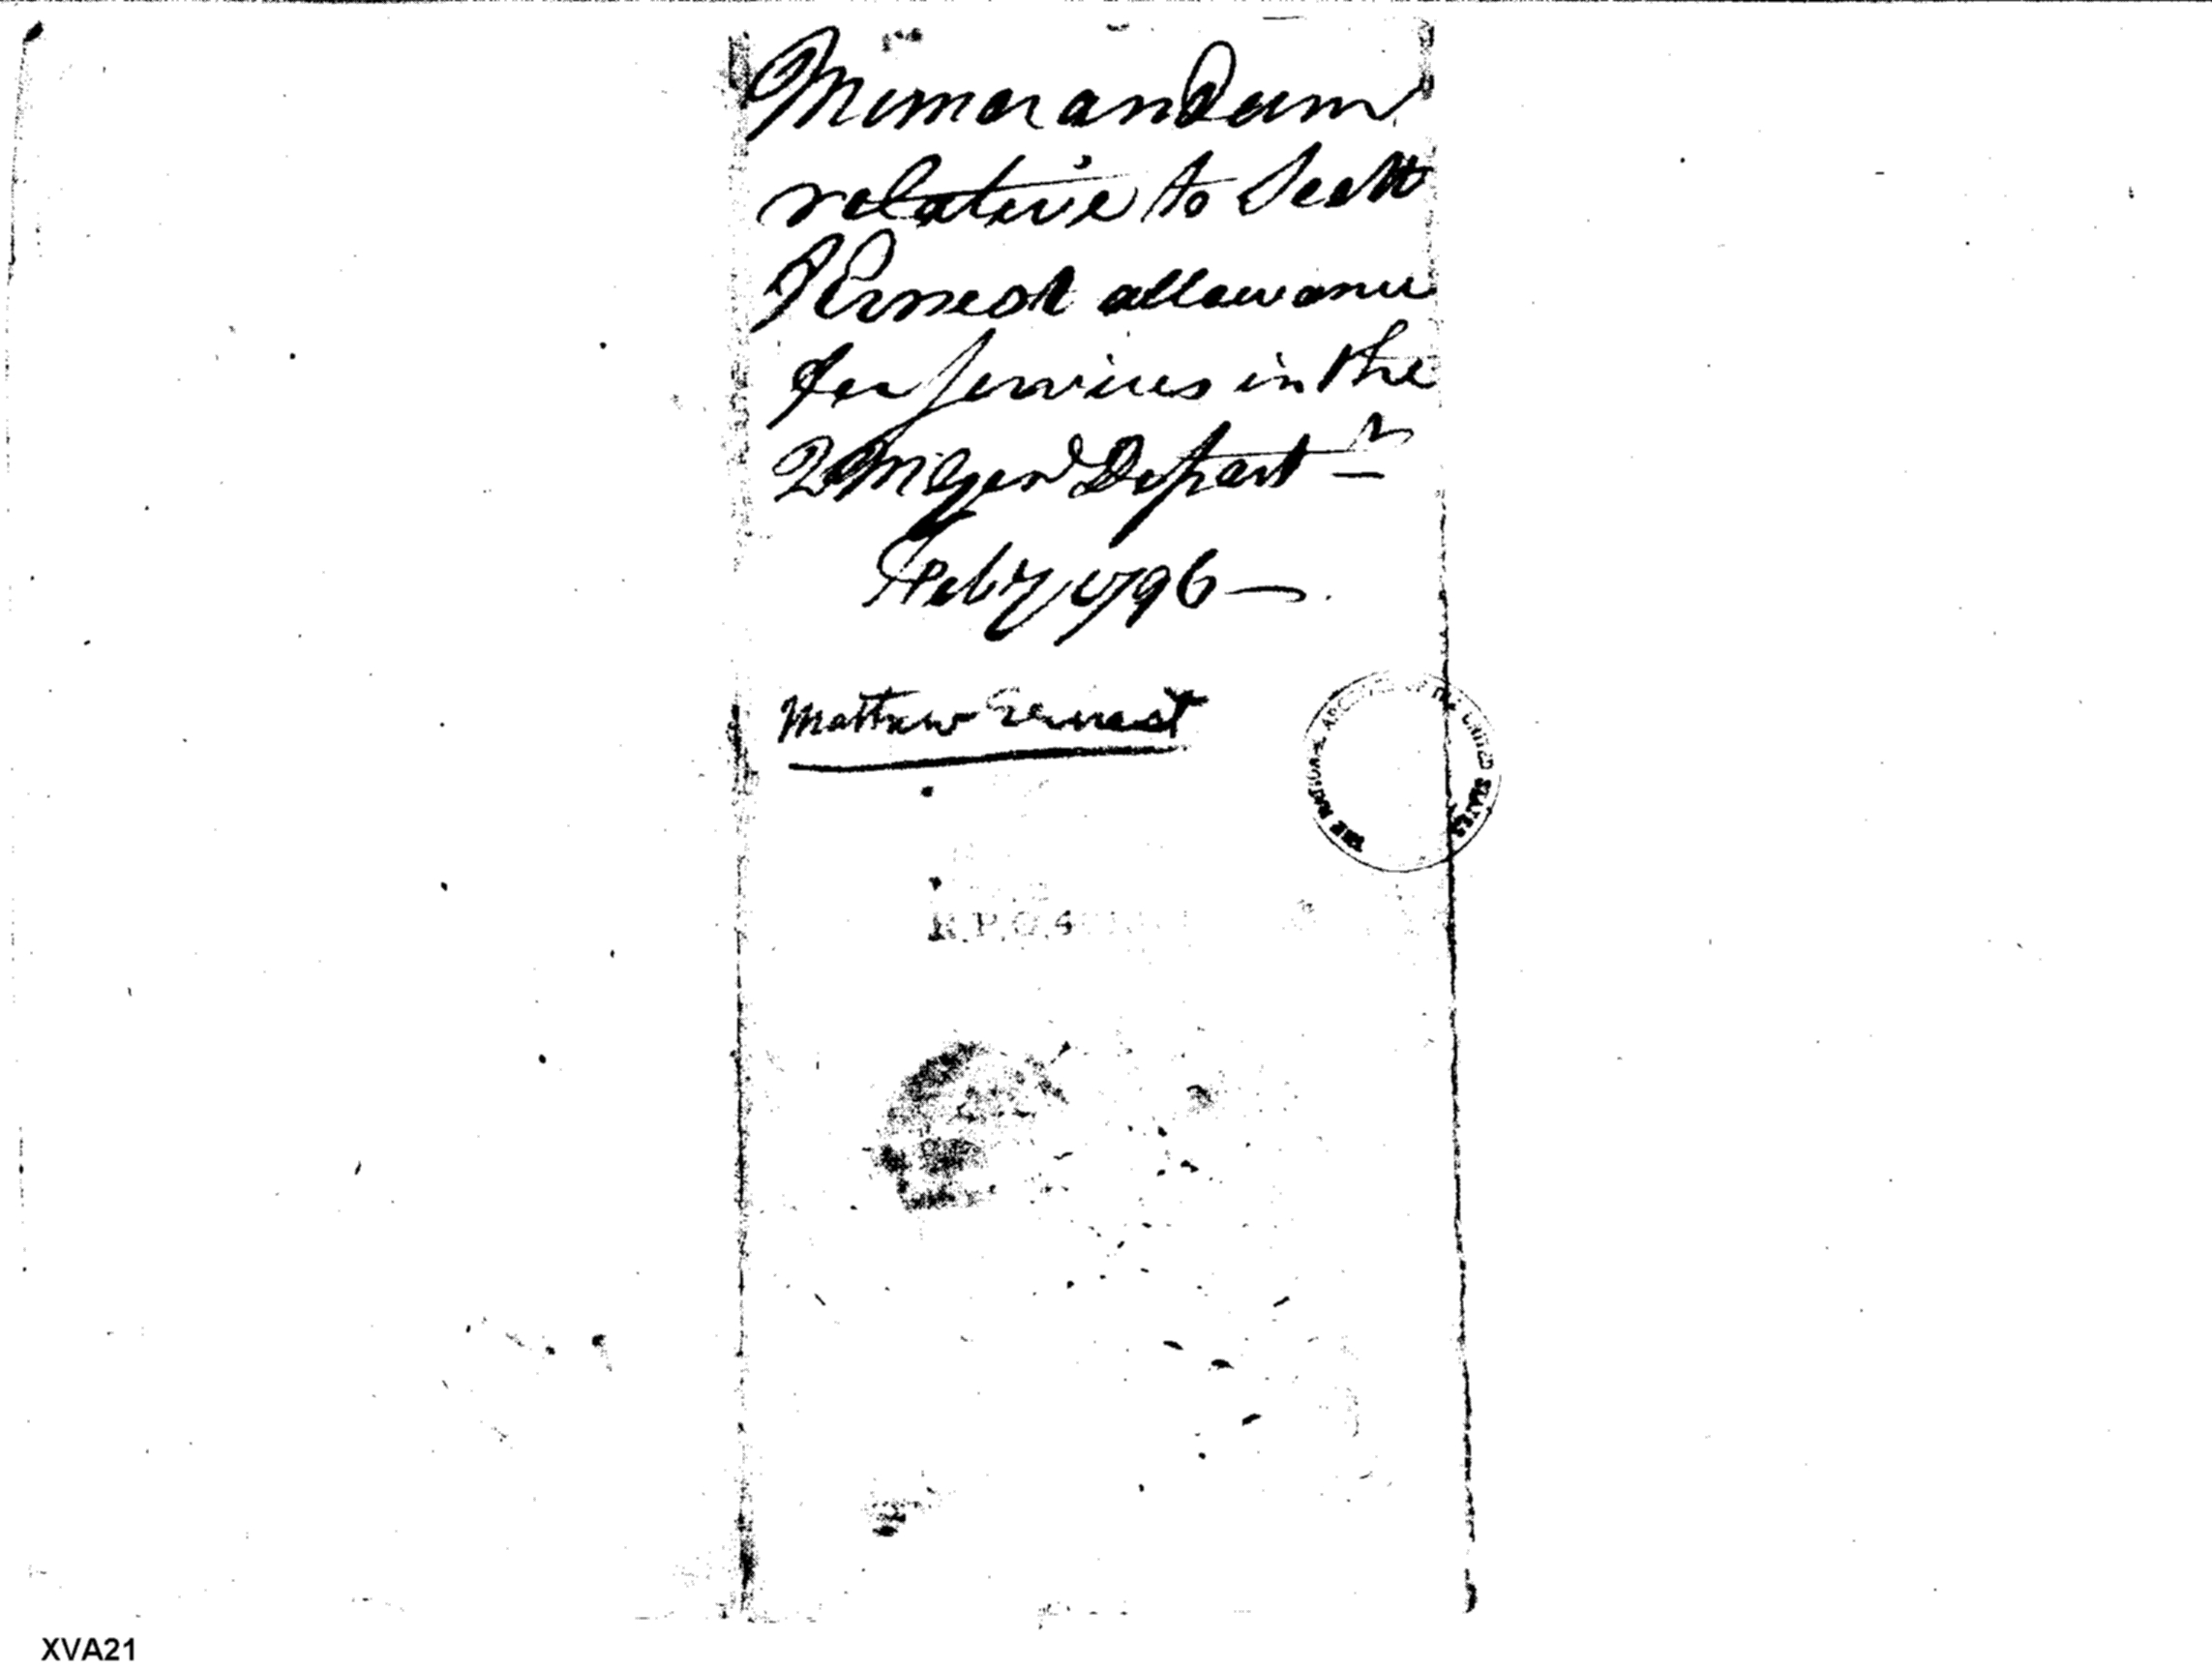 Memorandum
relative to Lieut
Ernest allowance
for services in the
QM Gen Depart
Feby 1796 —.
Matthew Ernest
THE NATIONAL ARCHIVES OF THE UNITED STATES
R.P.O.
XVA21